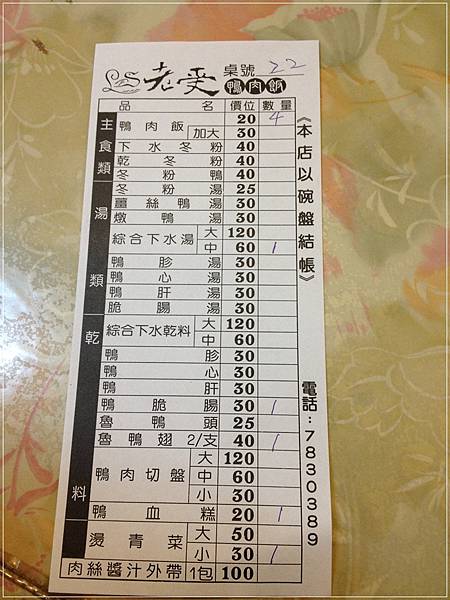 老受 桌號 22
鴨肉飯
品名 價位 數量
主食類
鴨肉飯 20 4
加大 30
下水冬粉 40
乾冬粉 40
冬粉鴨 40
湯類
冬粉湯 25
薑絲鴨湯 30
燉鴨湯 30
綜合下水湯 大 120
中 60 1
鴨胗湯 30
鴨心湯 30
鴨肝湯 30
脆腸湯 30
乾料
綜合下水乾料 大 120
中 60
鴨胗 30
鴨心 30
鴨肝 30
鴨脆腸 30 1
魯鴨頭 25
魯鴨翅 2/支 40 1
鴨肉切盤 大 120
中 60
小 30
鴨血糕 20 1
燙青菜 大 50
小 30 1
肉絲醬汁外帶 1包 100
《本店以碗盤結帳》
電話：7830389